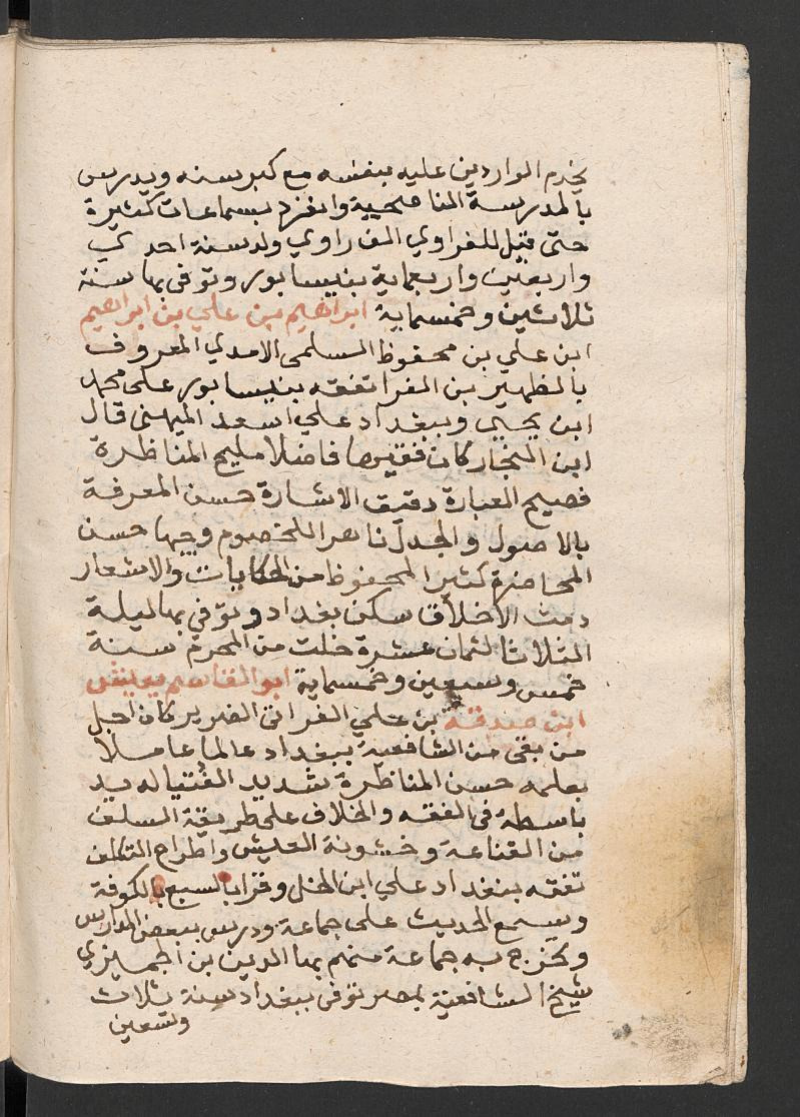 يخدم الواردين عليه بنفسه مع كبر سنه ويدرس
بالمدرسة الناصحية وانفرد بسماعات كثيرة
حتى قيل للفراوي الف راوي ولد سنة احدي
واربعين واربعماية بنيسابور وتوفي بها سنة
ثلاثين وخمسماية ابراهيم بن علي بن ابراهيم
ابن علي بن محفوظ السلمى الامدي المعروف
بالظهير بن الفرا تفقه بنيسابور على محمد
ابن يحيي وببغداد علي اسعد الميهنى قال
ابن النجار كان فقيها فاضلا مليح المناظرة
فصيح العبارة دقيق الاشارة حسن المعرفة
بالاصول والجدل نا هرا للخصوم وجها حسن
المحاضرة كثير المحفوظ من الحكايات والاشعار
دمث الاخلاق سكن بغداد وتوفي بها ليلة
الثلاثا لثمان عشرة خلت من المحرم سنة
خمس وسبعين وخمسماية ابو القاسم يعيش
ابن صدقة بن علي الفراتى الضرير كان اجل
من بقى من الشافعية ببغداد عالما عاملا
بعلمه حسن المناظرة شديد الفُتيا له يد
باسطة في الفقه والخلاف على طريقة السلف
من القناعة وخشونة العيش واطراح التكلف
تفقه ببغداد علي ابن الخل وقرا بالسبع بالكوفة
وسمع الحديث على جماعة ودرس ببعض المدارس
وتخرج به جماعة منهم بها الدين بن الجميزي
شيخ الشافعية بمصر توفى ببغداد سنة ثلاث
وتسعين